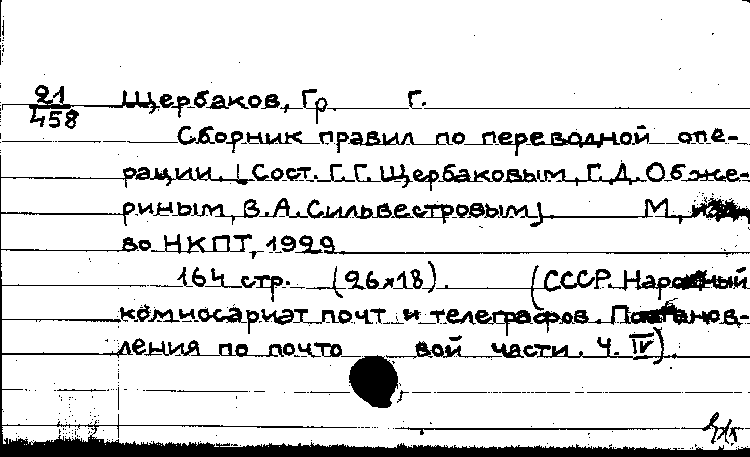 21
458
Щербаков, Гр. Г.
Сборник правил по переводной опе-
рации. [Сост. Г. Г. Щербаковым, Г. Д. Обже-
риным, В. А. Сильвестровым]. М., изд-
во НКПТ, 1929.
164 стр. (26×18). (СССР. Народный
комиссариат почт и телеграфов. Постанов-
ления по почто вой части. Ч. IV).